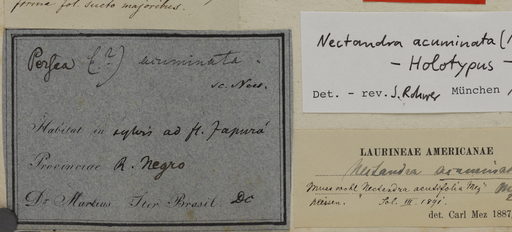 forma fol. subto majoribus.
Persea (?) acuminata.
sc. Nees.
Habitat in sylvis ad fl. Japurá
Provinciae R. Negro
Dr Martius Iter Brasil. Dc
Nectandra acuminata (
- Holotypus -
Det. - rev. J. Rohwer München
LAURINEAE AMERICANAE
Nectandra acuminat
Muss wohl "Nectandra acutifolia Mez"
heissen. Sol. III. 1891.
det. Carl Mez 1887